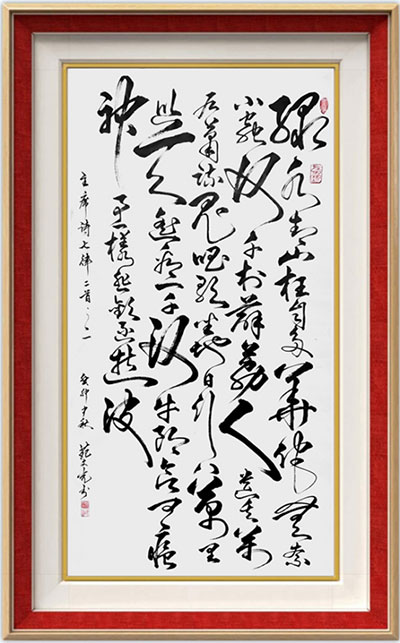 绿水青山枉自多華佗無奈
小蟲何千村薜荔人遗矢萬
户蕭疏鬼唱歌坐地日行八萬里
巡天遥看一千河牛郎欲问瘟
神事一樣悲歡逐逝波
主席诗七律二首之二
癸卯中秋 范书